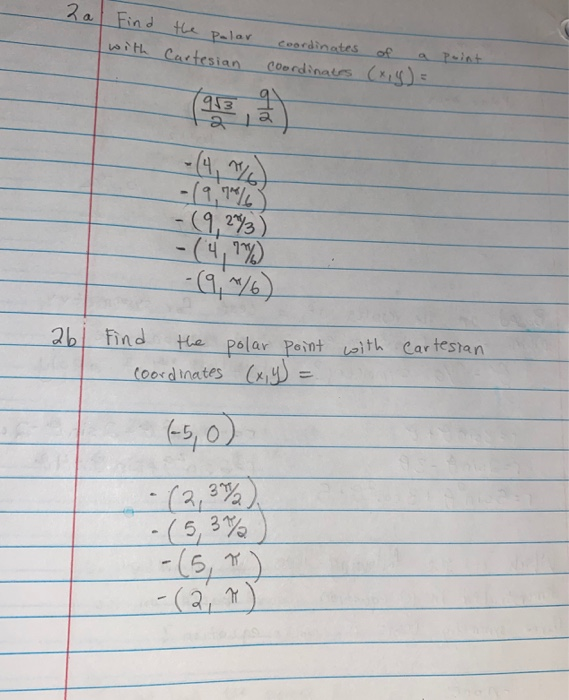 2a Find the polar coordinates of a point
with Cartesian coordinates (x,y) =
(9√3/2, 9/2)
- (4, π/6)
- (9, 7π/6)
- (9, 2π/3)
- (4, 7π/6)
- (9, π/6)
2b Find the polar point with Cartesian
coordinates (x,y) =
(-5, 0)
- (2, 3π/2)
- (5, 3π/2)
- (5, π)
- (2, π)